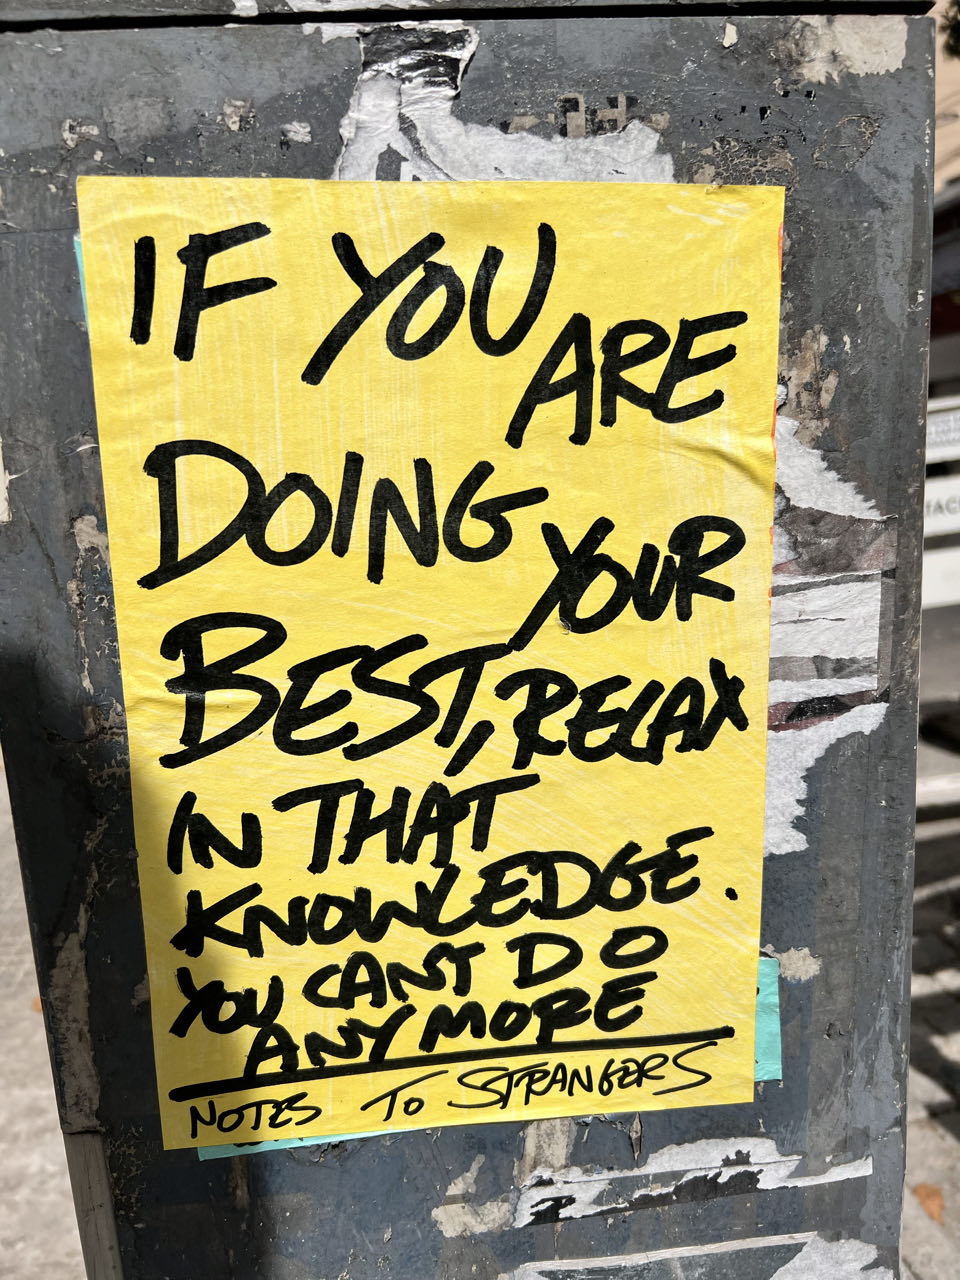 IF YOU
ARE
DOING
YOUR
BEST, RELAX
IN THAT
KNOWLEDGE.
YOU CANT DO
ANYMORE
NOTES TO STRANGERS